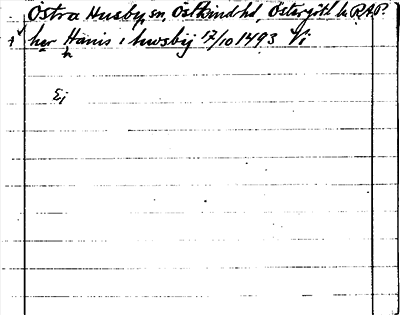 Östra Husby sn, Östkind hd, Östergötl l. RAP.
her Hanis i hwsby 17/10 1493 Vi
h
Ej